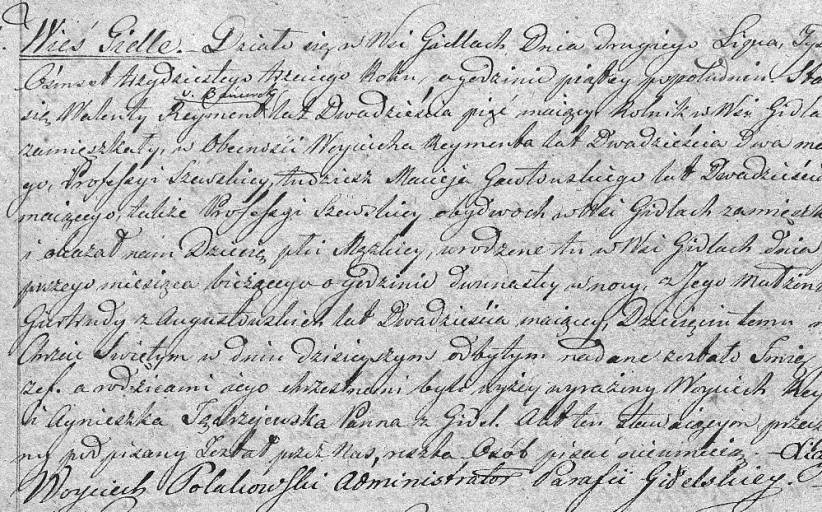 Wieś Gidle. Działo się w Wsi Gidlach Dnia drugiego Lipca, Tys
Ośmset trzydziestego trzeciego Roku, o godzinie piątey popołudniu. Sta
się Walenty Reyment lat Dwadzieścia pięć maiący Rolnik w Wsi Gidla
zamieszkały, w Obecności Woyciecha Reymenta lat Dwadzieścia Dwa ma
go, Professyi Szewskiey, tudziesz Macieja Gawłowskiego lat Dwadzieścia
maiącego, także Professyi Szewskiey obydwoch w Wsi Gidlach zamieszk
i okazał nam Dziecię płci Męzkiey, urodzone tu w Wsi Gidlach dnia
pszego miesiąca bieżącego o godzinie dwunastey w nocy, z Jego Małżonk
Giertrudy z Augustowskich lat Dwadzieścia maiącey, Dziecięciu temu
Chrzcie Swiętym w dniu dzisieyszym odbytym nadane zostało Imię
zef. a rodzicami iego chrzestnemi byli wyżey wyrażony Woyciech Rey
i Agnieszka Jędrzejewska Panna z Gidel. Akt ten stawaiącym przecz
ny podpisany Został przez Nas, reszta Osób pisać nieumieią.
Woyciech Polakowski Administrator Parafii Gidelskiey.